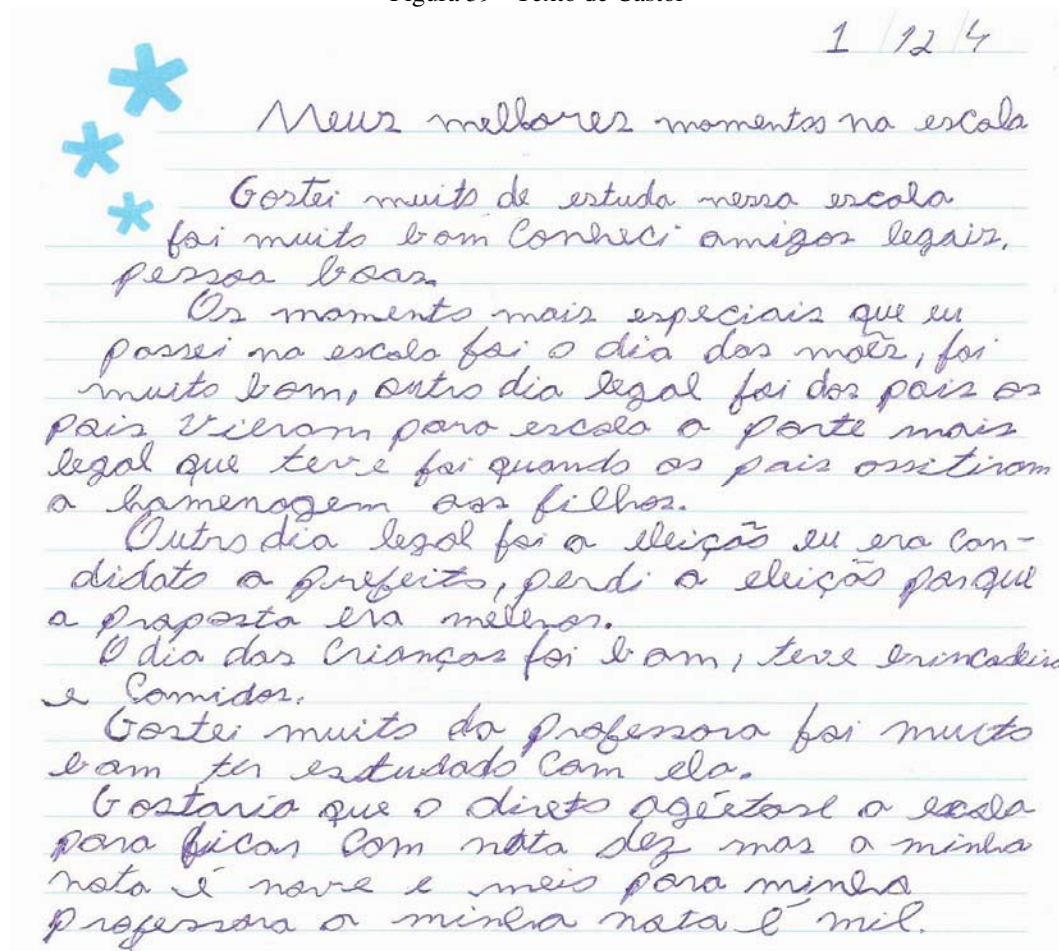 Figura 39 - Texto de Castor
1/12/4
Meus melhores momentos na escola
Gostei muito de estuda nessa escola
foi muito bom Conheci amigos legais,
pessoa boas.
Os momento mais especiais que eu
passei na escola foi o dia das mães, foi
muito bom, outro dia legal foi dos pais os
pais Vieram para escola a parte mais
legal que teve foi quando os pais assitiram
a homenagem aos filhos.
Outro dia legal foi a eleição eu era Can-
didato a prefeito, perdi a eleição porque
a proposta era melhor.
O dia das Crianças foi bom, teve brincadeira
e Comidas.
Gostei muito da professora foi muito
bom ter estudado Com ela.
Gostaria que o direto a escola
para ficar Com nota dez mas a minha
nota é nove e meio para minha
professora a minha nota é mil.